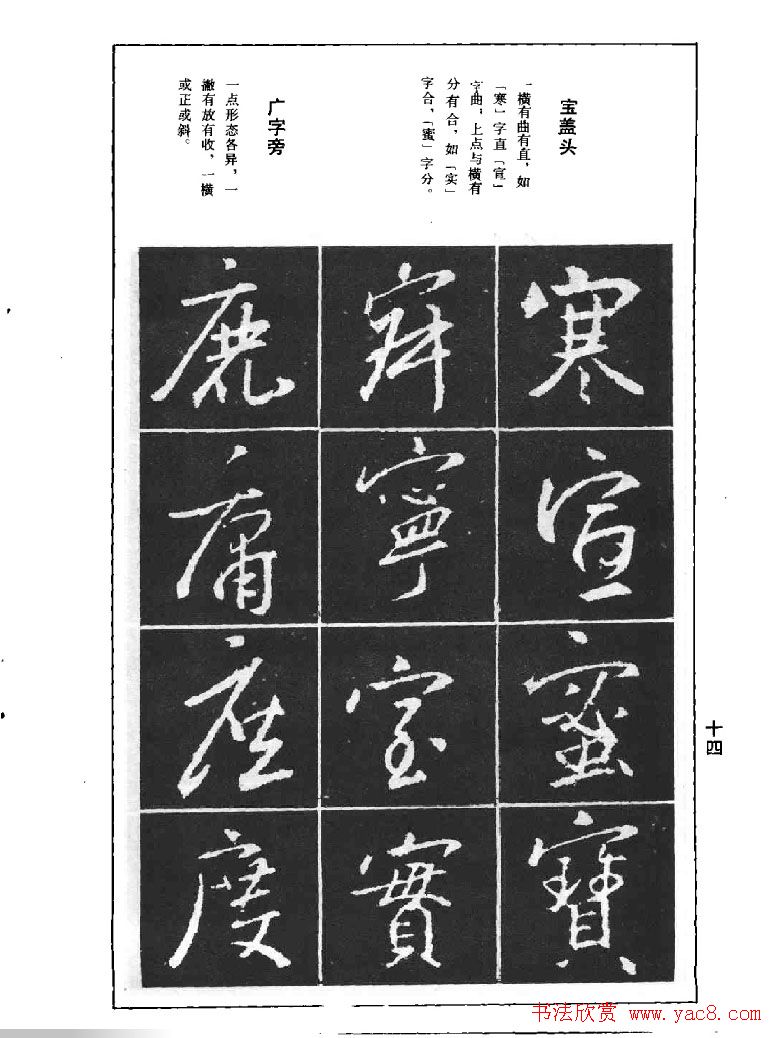 宝盖头
一横有曲有直，如
「寒」字直「宣」
字曲；上点与横有
分有合，如「实」
字合，「蜜」字分。
广字旁
一点形态各异，一
撇有放有收，一横
或正或斜。
寒宣蜜寶
寧室實
鹿庸座度
十四
书法欣赏 www.yac8.com